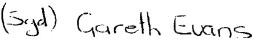 (Sgd) Gareth Evans